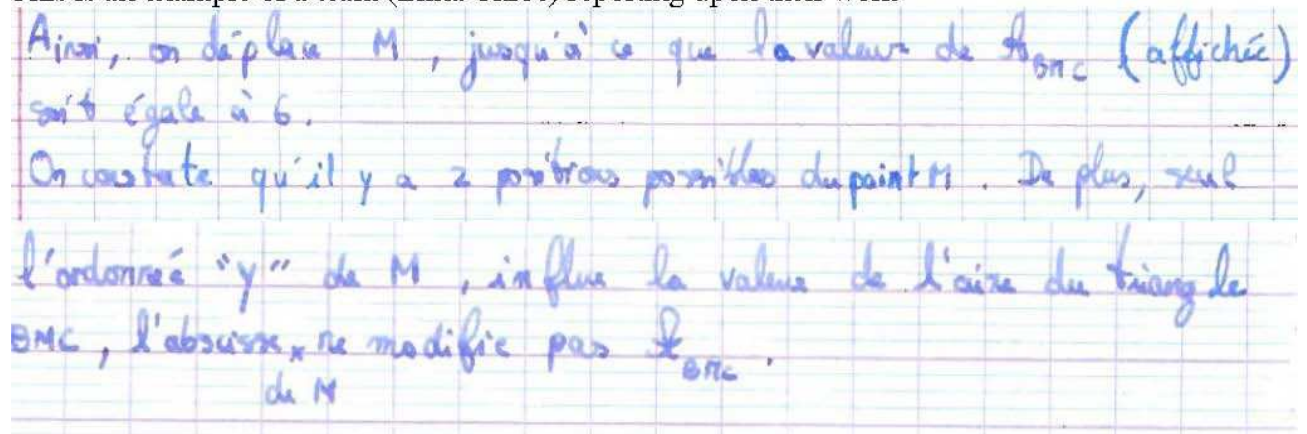 Ainsi, on déplace M, jusqu'à ce que la valeur de A_BMC (affichée)
soit égale à 6.
On constate qu'il y a 2 positions possibles du point M. De plus, seul
l'ordonnée "y" de M, influe la valeur de l'aire du triangle
BMC, l'abscisse x ne modifie pas A_BMC.
du M